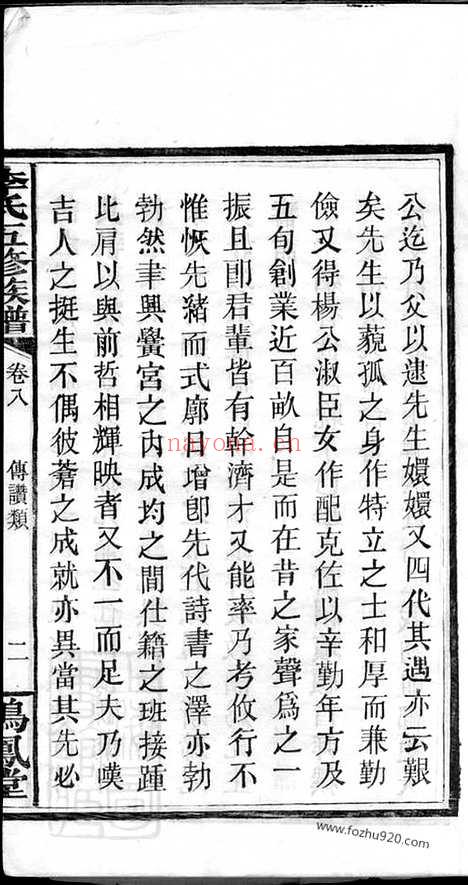 公迄乃父以逮先生嬛嬛又四代其遇亦云艱
矣先生以藐孤之身作特立之士和厚而兼勤
儉又得楊公淑臣女作配克佐以辛勤年方及
五旬創業近百畝自是而在昔之家聲爲之一
振且卽君輩皆有幹濟才又能率乃考攸行不
惟恢先緒而式廓日增卽先代詩書之澤亦勃
勃然聿興黌宮之內成均之間仕籍之班接踵
比肩以與前哲相輝映者又不一而足夫乃嘆
吉人之挺生不偶彼蒼之成就亦異當其先必
李氏五修族譜
卷八
傳讚類
二
鳴鳳堂
nayona.cn
www.fozhu920.com